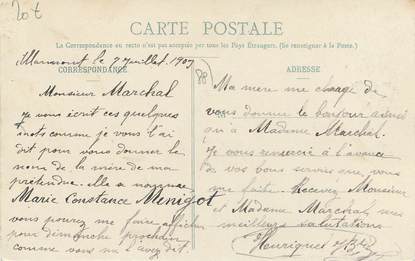 20t
CARTE POSTALE
La Correspondance au recto n'est pas acceptée par tous les Pays Étrangers. (Se renseigner à la Poste.)
le 7 Juillet 1907
CORRESPONDANCE
Monsieur Marchal
Je vous écrit ces quelques
mots comme je vous l'ai
dit pour vous donner le
nom de la mère de ma
prétendue. elle a nommée
Marie Constance Menigot
vous pouvez me faire afficher
pour dimanche prochain
comme vous m'avez dit.
ADRESSE
Ma mère me charge de
vous donner le bonjour ainsi
qu'à Madame Marchal.
Je vous remercie à l'avance
de vos bons services que vous
me faite. Recevez Monsieur
et Madame Marchal mes
meilleurs salutations
Henriquet